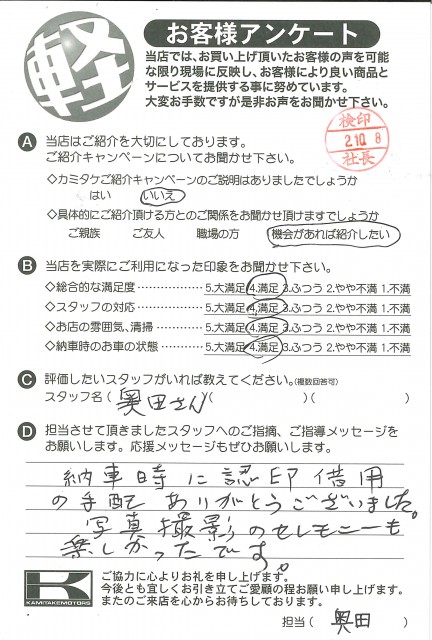 軽
お客様アンケート
当店では、お買い上げ頂いたお客様の声を可能
な限り現場に反映し、お客様により良い商品と
サービスを提供する事に努めています。
大変お手数ですが是非お声をお聞かせ下さい。
検印
2.10.8
社長
A 当店はご紹介を大切にしております。
ご紹介キャンペーンについてお聞かせ下さい。
◇カミタケご紹介キャンペーンのご説明はありましたでしょうか
はい いいえ
◇具体的にご紹介頂ける方とのご関係をお聞かせ頂けますでしょうか
ご親族 ご友人 職場の方 機会があれば紹介したい
B 当店を実際にご利用になった印象をお聞かせ下さい。
◇総合的な満足度 5.大満足 4.満足 3.ふつう 2.やや不満 1.不満
◇スタッフの対応 5.大満足 4.満足 3.ふつう 2.やや不満 1.不満
◇お店の雰囲気、清掃 5.大満足 4.満足 3.ふつう 2.やや不満 1.不満
◇納車時のお車の状態 5.大満足 4.満足 3.ふつう 2.やや不満 1.不満
C 評価したいスタッフがいれば教えてください。(複数回答可)
スタッフ名 ( 奥田さん )( )( )
D 担当させて頂きましたスタッフへのご指摘、ご指導メッセージを
お願いします。応援メッセージもぜひお願いします。
納車時に認印借用
の手配ありがとうございました。
写真撮影のセレモニーも
楽しかったです。
K
KAMITAKEMOTORS
ご協力に心よりお礼を申し上げます。
今後とも宜しくお引き立てご愛顧の程お願い申し上げます。
またのご来店を心からお待ちしております。
担当 ( 奥田 )